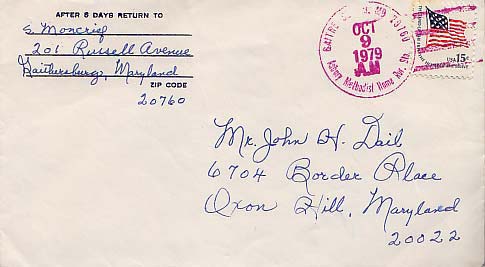 AFTER 5 DAYS RETURN TO
S. Moncrief
201 Russell Avenue
Gaithersburg, Maryland
ZIP CODE
20760
OCT
9
1979
A.M
Asbury Methodist Home
MD 20760
USA 15c
Mr. John H. Dail
6704 Border Place
Oxon Hill, Maryland
20022